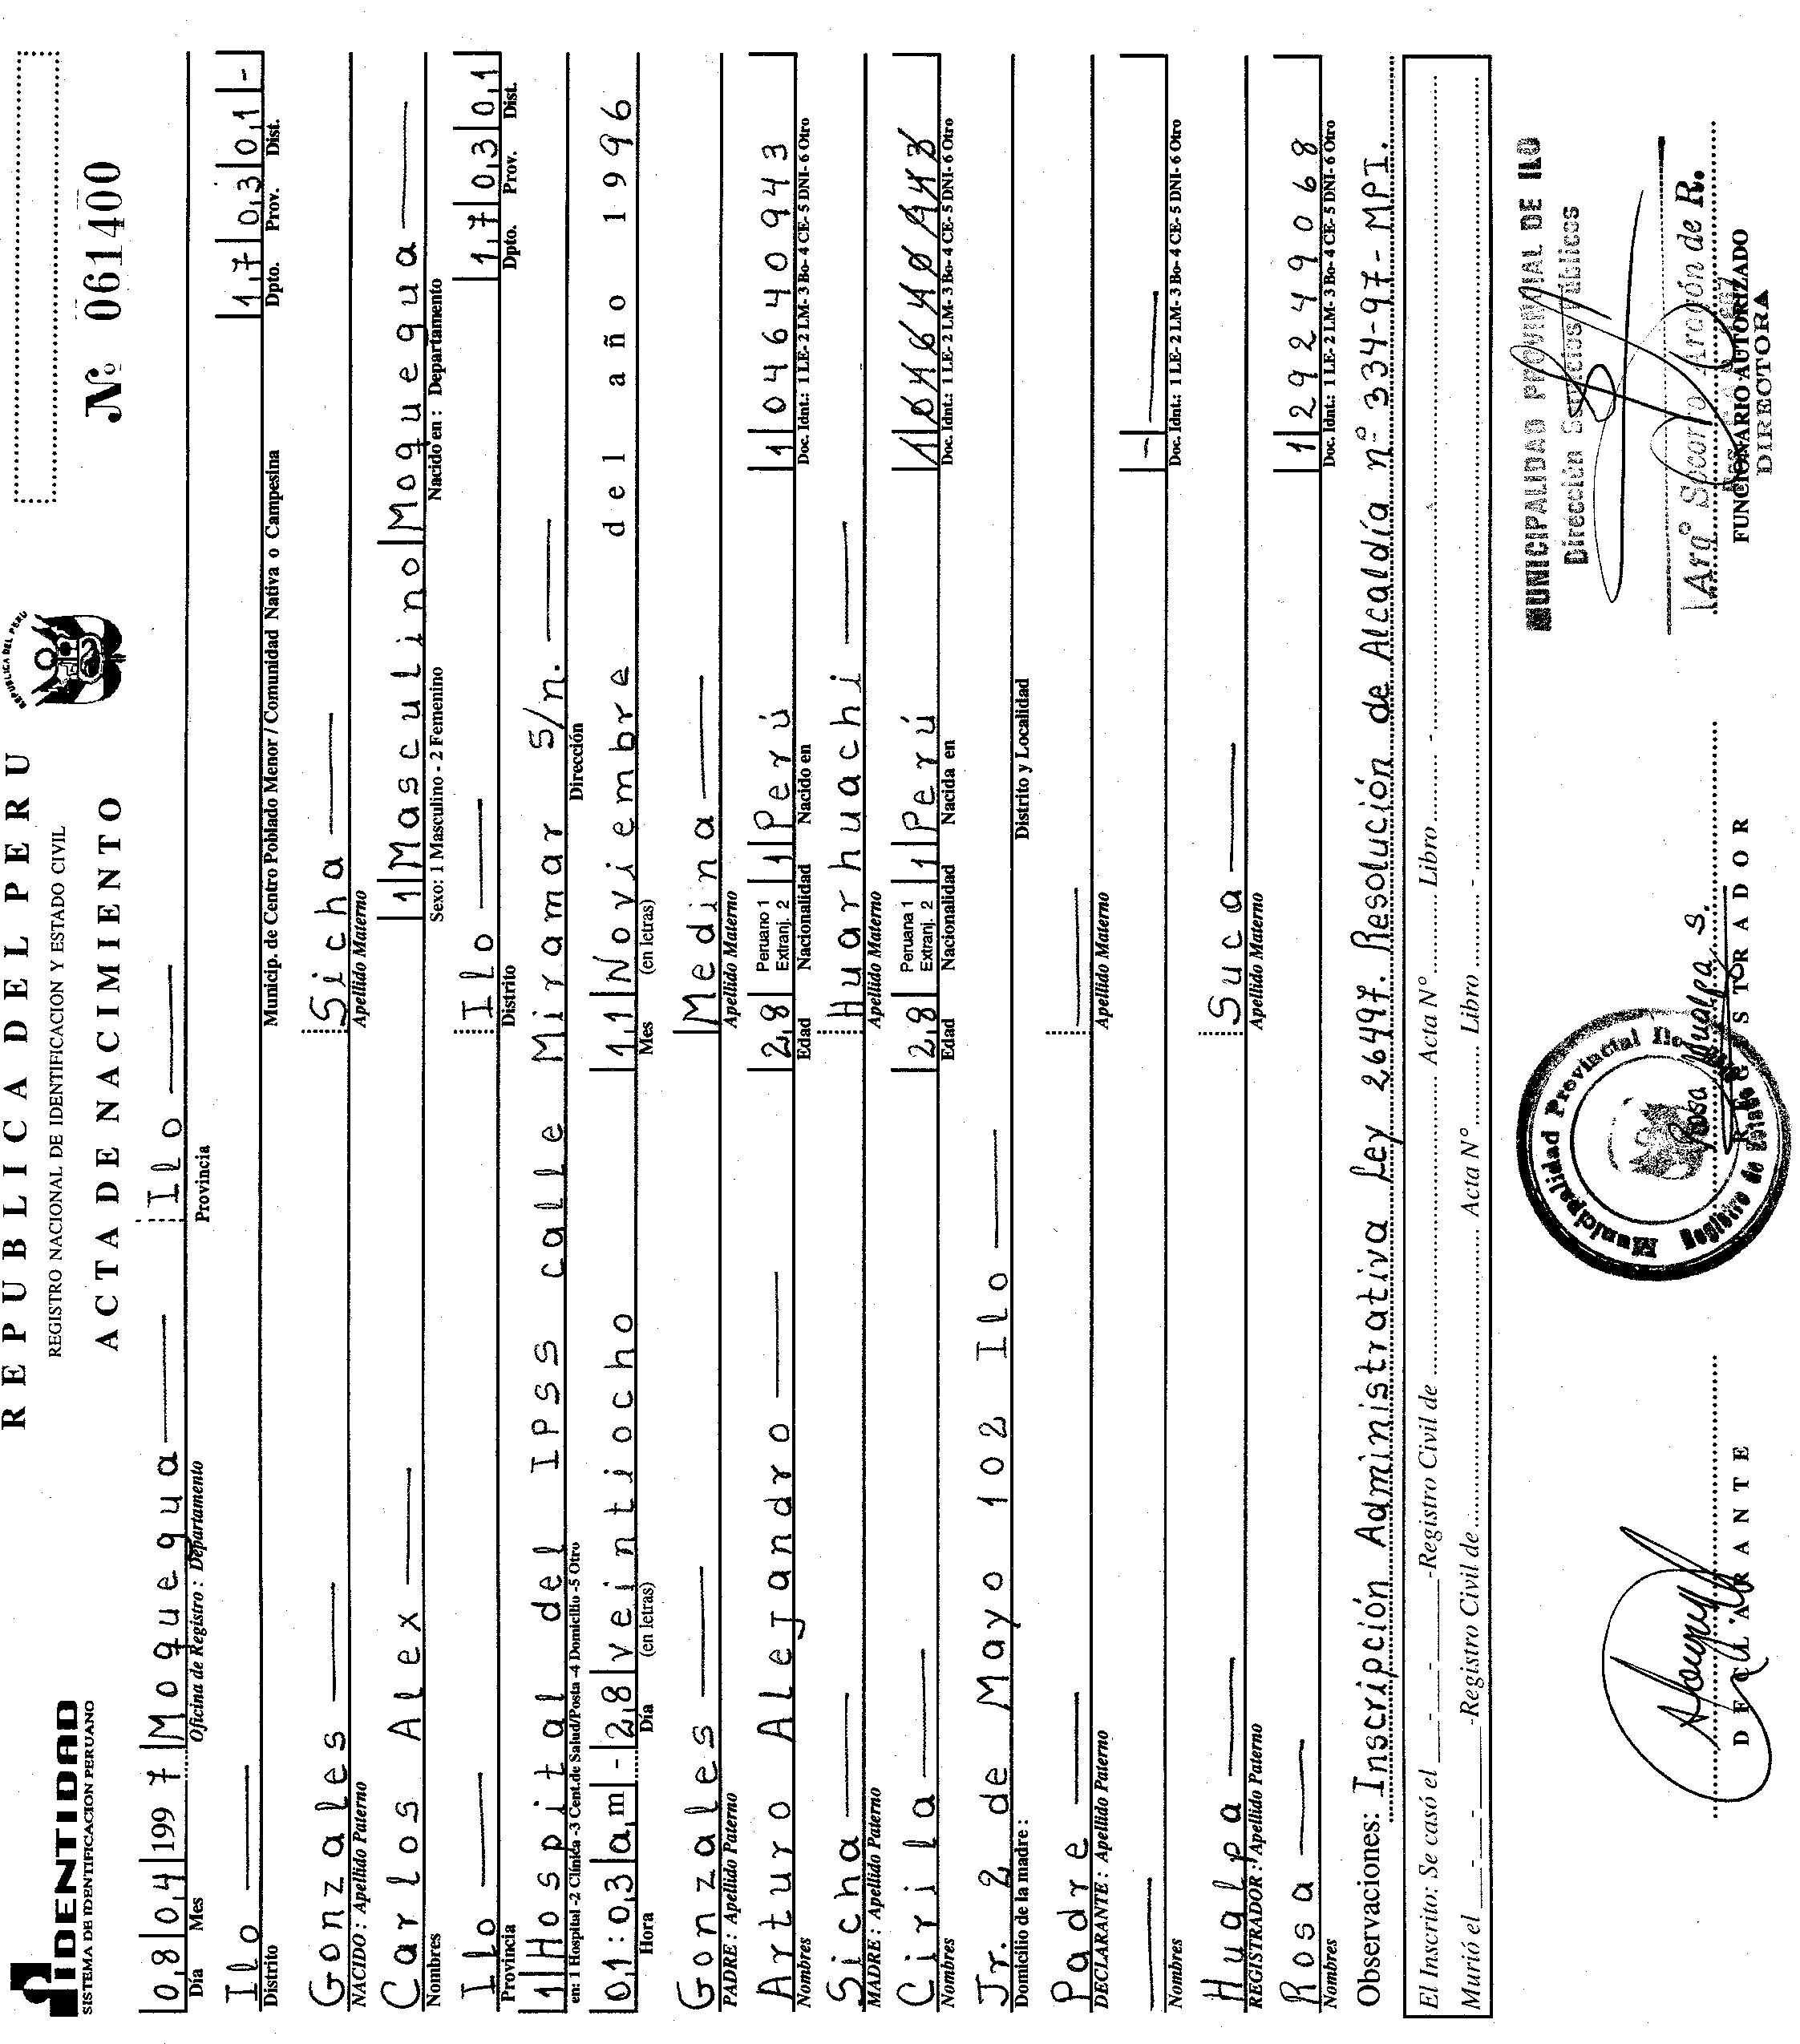 IDENTIDAD
SISTEMA DE IDENTIFICACION PERUANO
REPUBLICA DEL PERU
REPUBLICA DEL PERU
REGISTRO NACIONAL DE IDENTIFICACION Y ESTADO CIVIL
ACTA DE NACIMIENTO
Nº 061400
08 04 1997 Moquegua Ilo
Día Mes Oficina de Registro : Departamento Provincia
Ilo 17 03 01 -
Distrito Municip. de Centro Poblado Menor / Comunidad Nativa o Campesina Dpto. Prov. Dist.
Gonzales Sicha
NACIDO : Apellido Paterno Apellido Materno
Carlos Alex 1 Masculino Moquegua
Nombres Sexo: 1 Masculino - 2 Femenino Nacido en : Departamento
Ilo Ilo 17 03 01
Provincia Distrito Dpto. Prov. Dist.
1 Hospital del IPSS calle Miramar S/n.
en: 1 Hospital -2 Clínica -3 Cent.de Salud/Posta -4 Domicilio -5 Otro Dirección
01:03 a,m - 28 veintiocho 11 Noviembre del año 1996
Hora Día (en letras) Mes (en letras)
Gonzales Medina
PADRE : Apellido Paterno Apellido Materno
Arturo Alejandro 28 Peruano 1 Extranj. 2 1 Perú 1 04640943
Nombres Edad Nacionalidad Nacido en Doc. Idnt.: 1 LE- 2 LM- 3 Bo- 4 CE- 5 DNI- 6 Otro
Sicha Huarhuachi
MADRE : Apellido Paterno Apellido Materno
Cirila 28 Peruana 1 Extranj. 2 1 Perú 1 04640943
Nombres Edad Nacionalidad Nacida en Doc. Idnt.: 1 LE- 2 LM- 3 Bo- 4 CE- 5 DNI- 6 Otro
Jr. 2 de Mayo 102 Ilo
Domicilio de la madre : Distrito y Localidad
Padre
DECLARANTE : Apellido Paterno Apellido Materno
-
Nombres Doc. Idnt.: 1 LE- 2 LM- 3 Bo- 4 CE- 5 DNI- 6 Otro
Hualpa Suca
REGISTRADOR : Apellido Paterno Apellido Materno
Rosa 1 29249068
Nombres Doc. Idnt.: 1 LE- 2 LM- 3 Bo- 4 CE- 5 DNI- 6 Otro
Observaciones: Inscripción Administrativa Ley 26497. Resolución de Alcaldía nº 334-97-MPI.
El Inscrito: Se casó el - - -Registro Civil de Acta Nº Libro -
Murió el - - -Registro Civil de Acta Nº Libro -
MUNICIPALIDAD PROVINCIAL DE ILO
Dirección Servicios Públicos
Municipalidad Provincial Ilo
Registro de Estado
Rosa Hualpa S.
Socorro Aragón de R.
DECLARANTE
REGISTRADOR
FUNCIONARIO AUTORIZADO
DIRECTORA